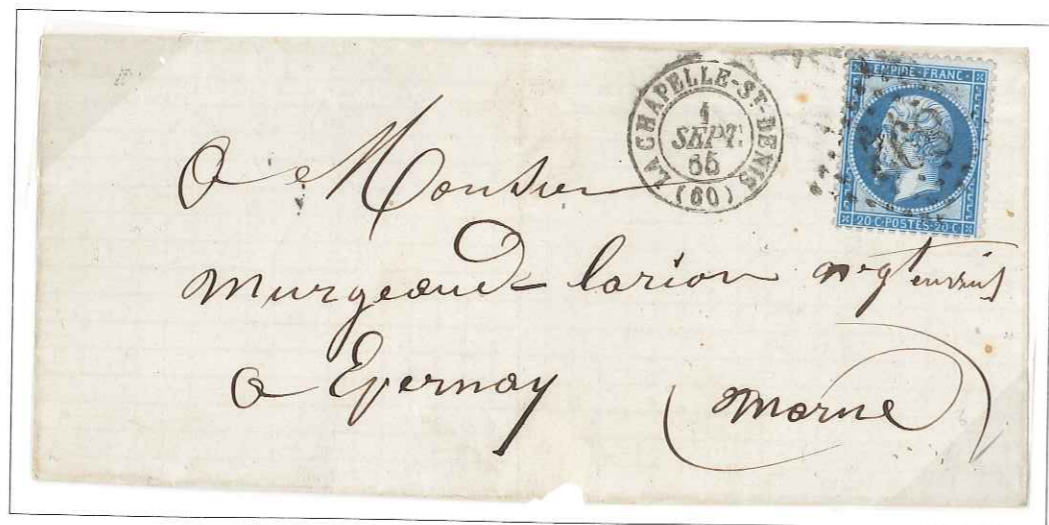 LA CHAPELLE-ST-DENIS (60)
1
SEPT.
65
EMPIRE FRANC
20 C POSTES 20 C
A Monsieur
Murgeaud Larion ngt en vins
a Epernay (Marne)